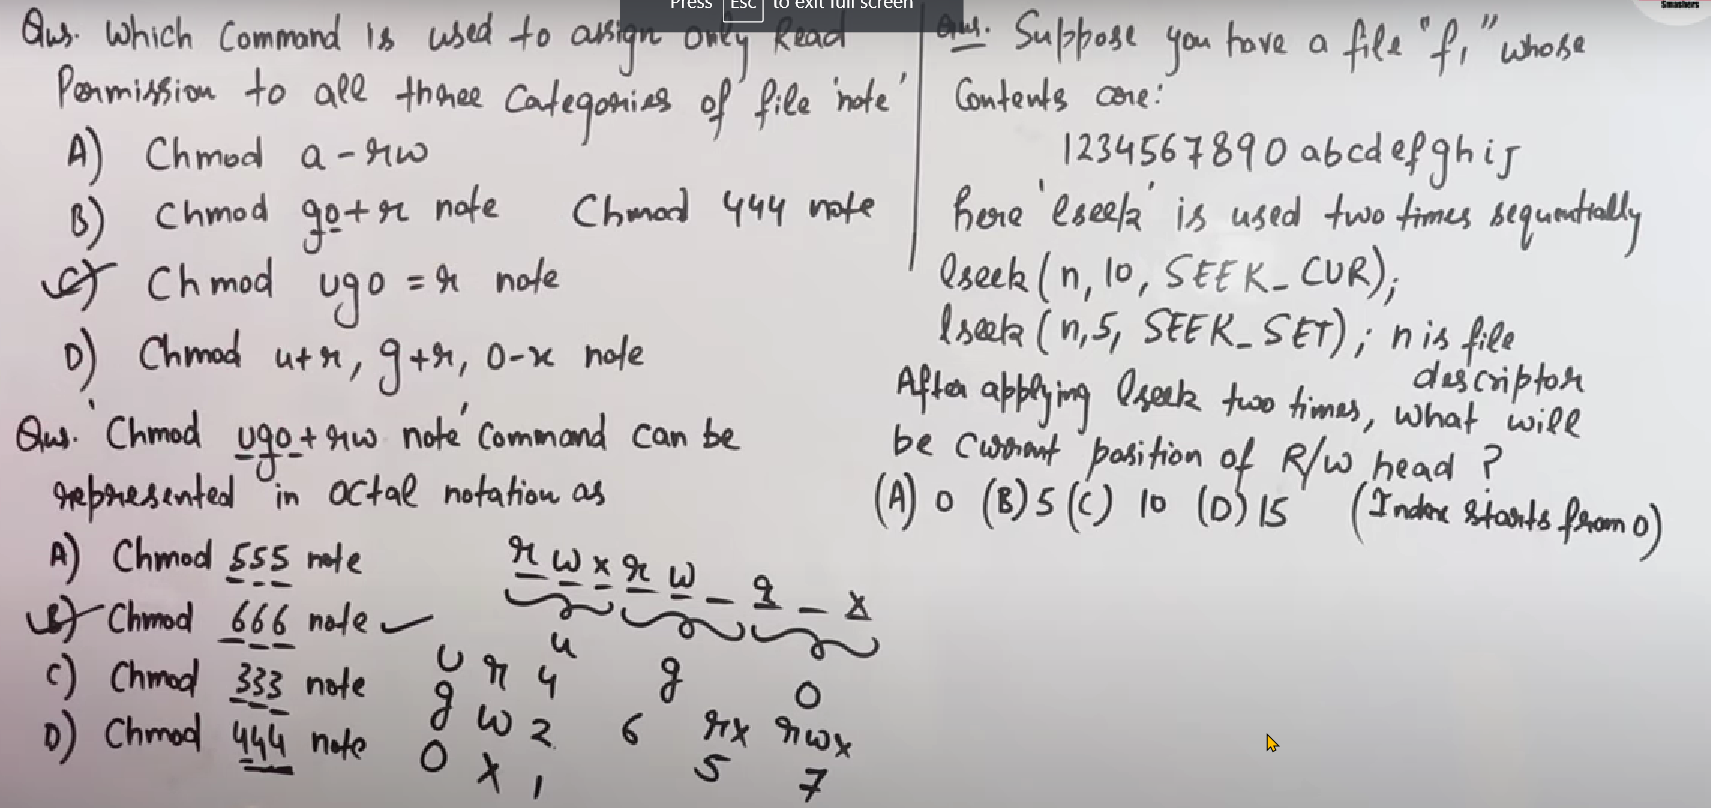 Press Esc to exit full screen
Smashers
Qus. Which Command is used to assign only Read
Permission to all three Categories of file 'note'
A) Chmod a-rw
B) Chmod go+r note Chmod 444 note
C) Chmod ugo=r note
D) Chmod u+r, g+r, o-x note
Qus. 'Chmod ugo+rw note' Command can be
represented in octal notation as
A) Chmod 555 note
B) Chmod 666 note
C) Chmod 333 note
D) Chmod 444 note
r w x r w _ r _ x
u g o
U r 4
g w 2 6 rx rwx
O x 1 5 7
Qus. Suppose you have a file "f1" whose
Contents are:
1234567890abcdefghij
here 'lseek' is used two times sequentially
lseek(n,10, SEEK_CUR);
lseek(n,5, SEEK_SET); n is file
descriptor
After applying lseek two times, what will
be current position of R/W head?
(A) 0 (B) 5 (C) 10 (D) 15 (Index starts from 0)